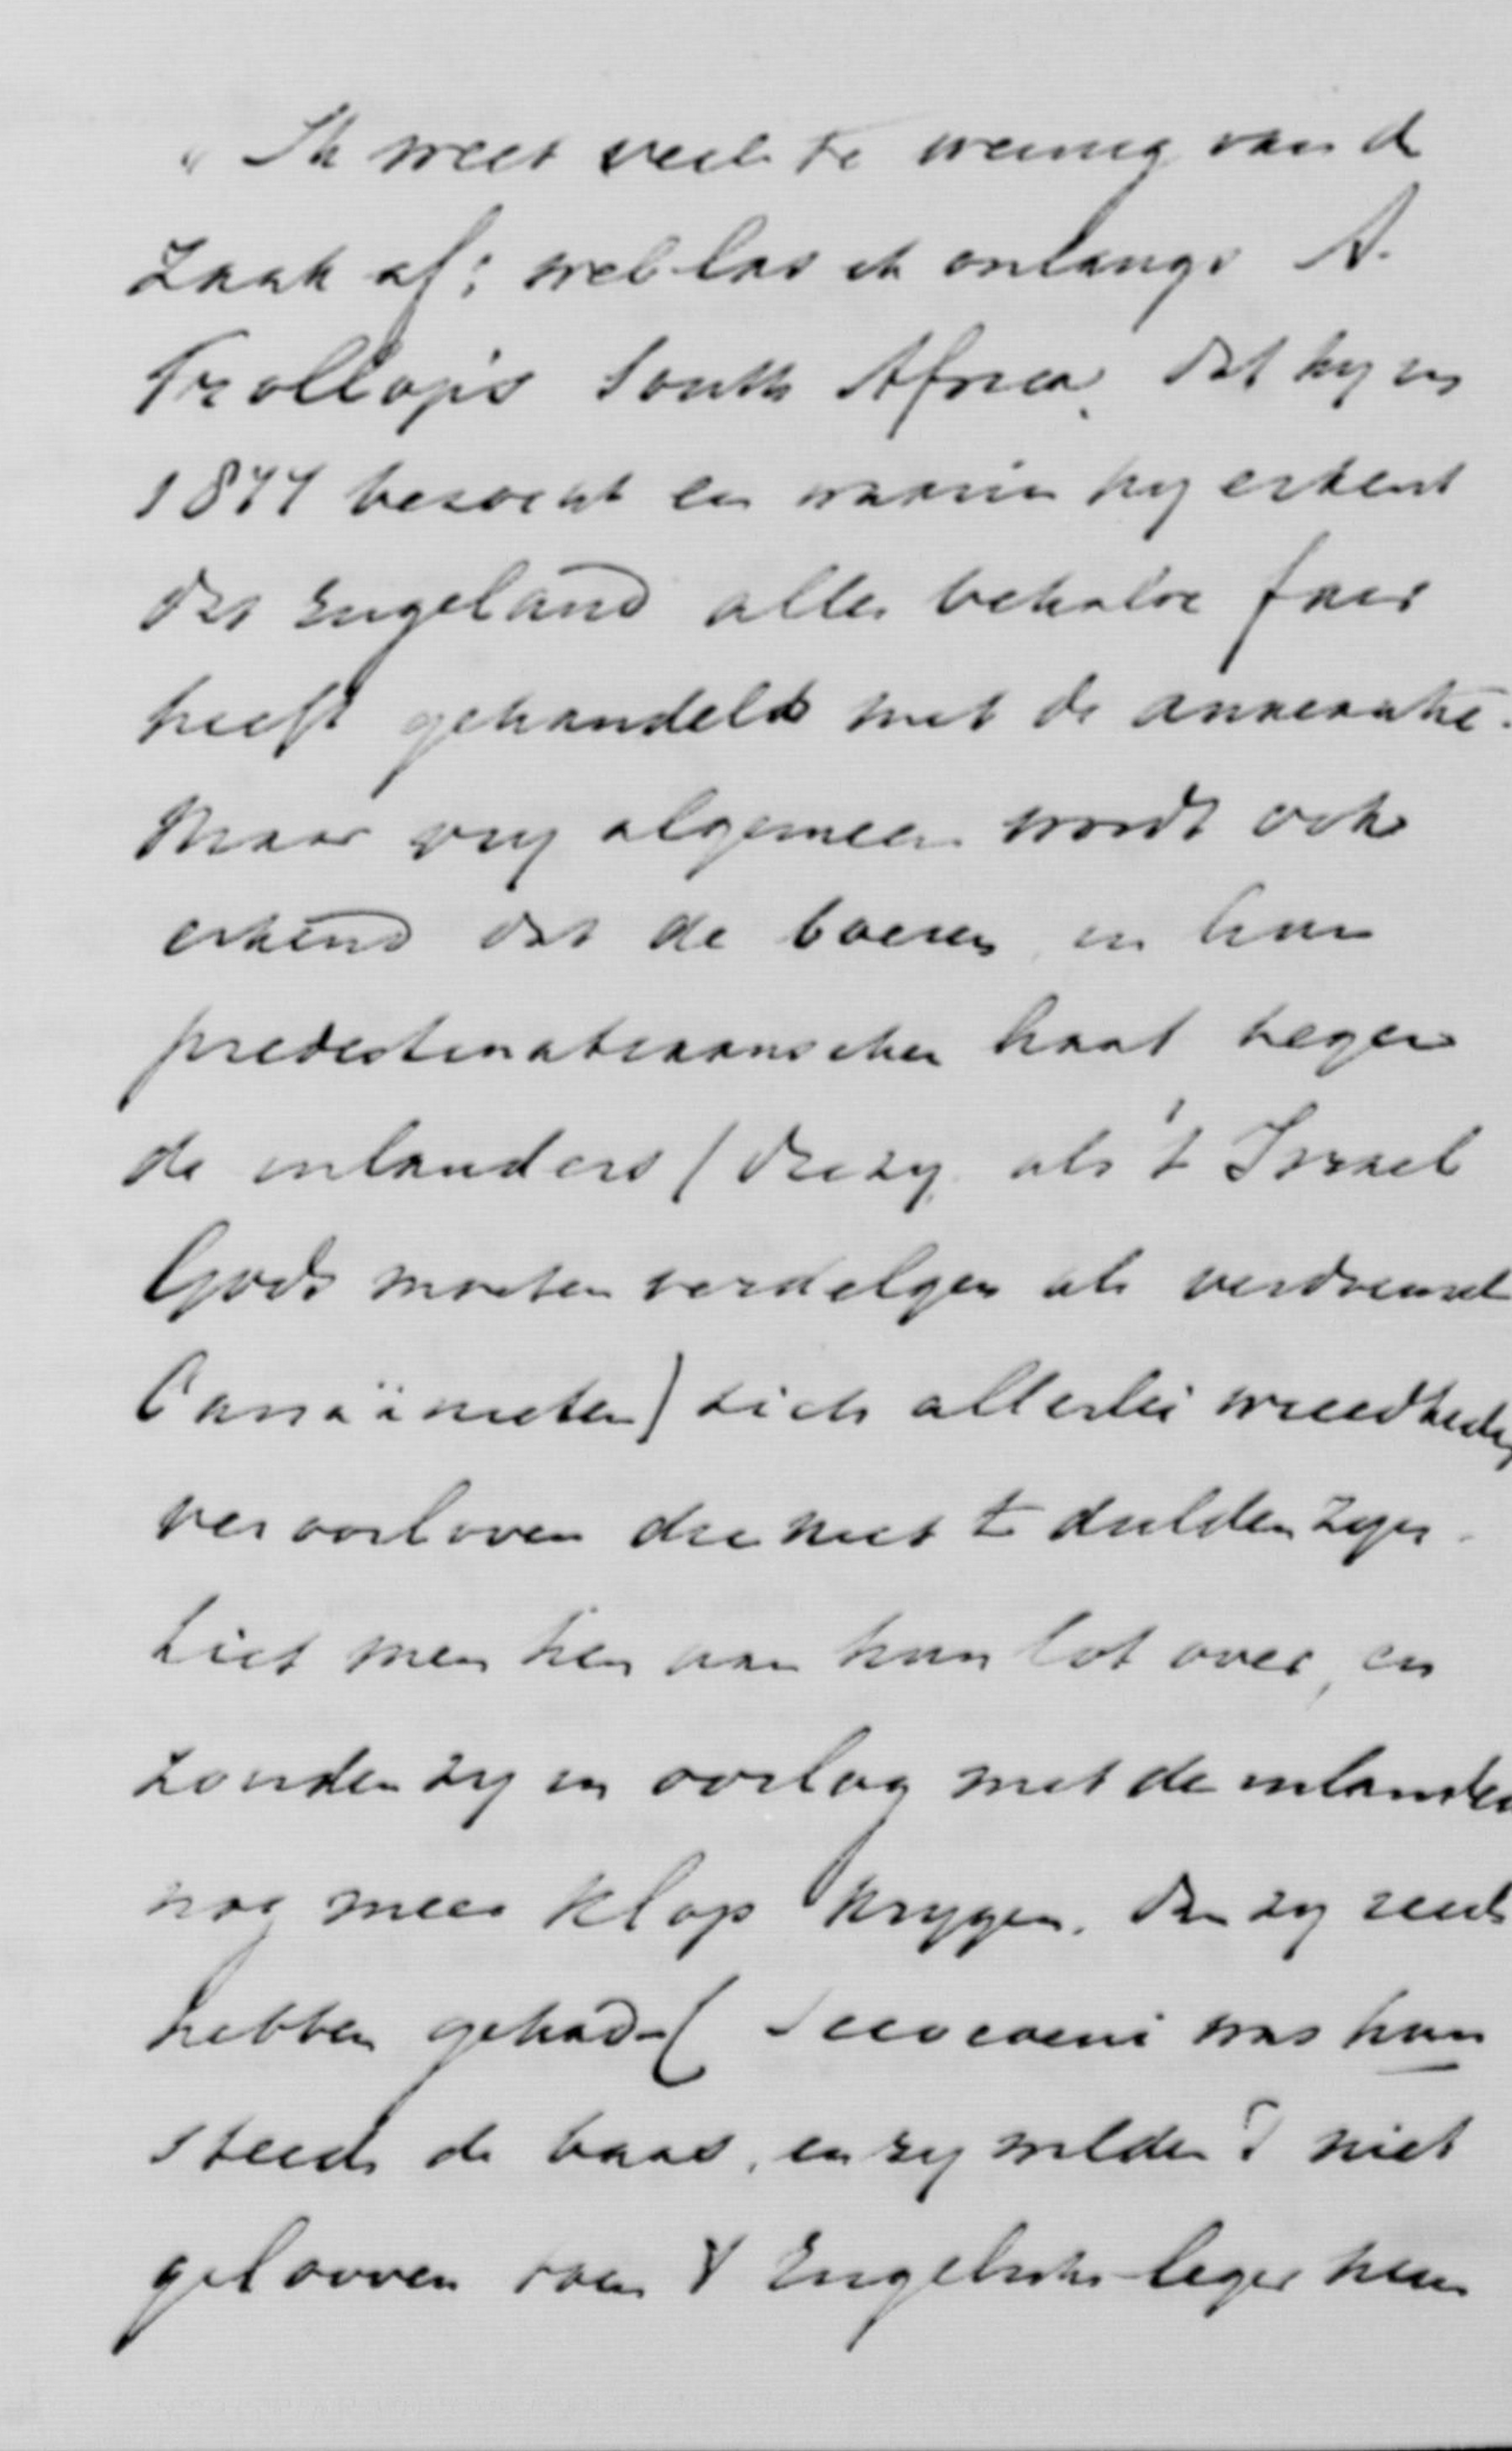 "Ik weet veel te weinig van d
zaak af; wel las ik onlangs A.
Trollop's South Africa, dat hy in
1877 bezocht en waarin hy erkent
dat Engeland alles behalve fair
heeft gehandeld met de annexatie.
Maar vry algemeen wordt ook
erkend dat de boeren, in hun
predestinatiaanschen haat tegen
de inlanders (die zy als 't Israel
Gods moeten verdelgen als verdoemde
Canaänieten) zich allerlei wreedheden
veroorloven die niet te dulden zyn.
Liet men hen aan hun lot over, en
zouden zy in oorlog met de inlanders
nog meer klop krygen, dan zy reeds
hebben gehad - (Secocoeni was hun
steeds de baas, en zy wilden 't niet
gelooven toen 't Engelsche leger hem